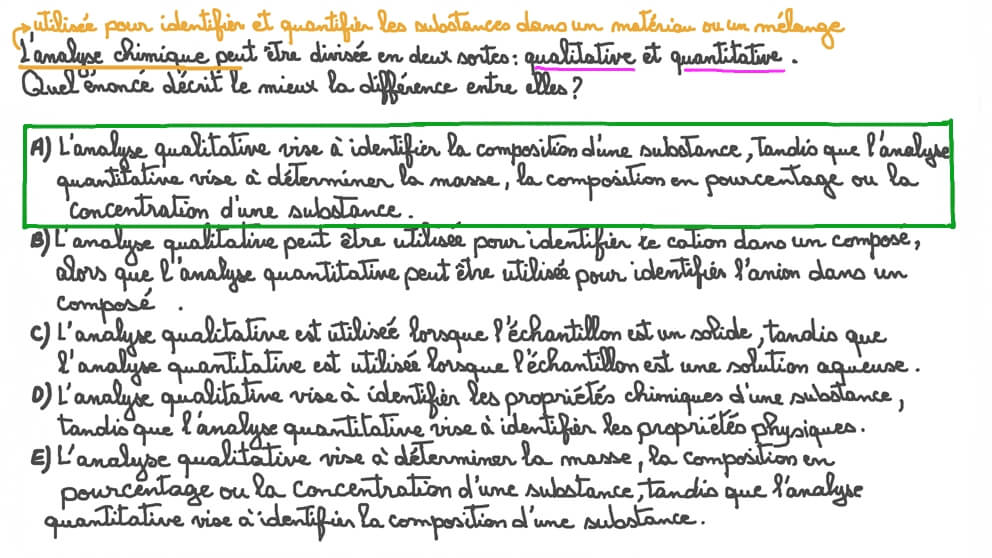 utilisée pour identifier et quantifier les substances dans un matériau ou un mélange
L'analyse chimique peut être divisée en deux sortes : qualitative et quantitative.
Quel énoncé décrit le mieux la différence entre elles ?
A) L'analyse qualitative vise à identifier la composition d'une substance, tandis que l'analyse
quantitative vise à déterminer la masse, la composition en pourcentage ou la
concentration d'une substance.
B) L'analyse qualitative peut être utilisée pour identifier le cation dans un composé,
alors que l'analyse quantitative peut être utilisée pour identifier l'anion dans un
composé .
C) L'analyse qualitative est utilisée lorsque l'échantillon est un solide, tandis que
l'analyse quantitative est utilisée lorsque l'échantillon est une solution aqueuse.
D) L'analyse qualitative vise à identifier les propriétés chimiques d'une substance,
tandis que l'analyse quantitative vise à identifier les propriétés physiques.
E) L'analyse qualitative vise à déterminer la masse, la composition en
pourcentage ou la concentration d'une substance, tandis que l'analyse
quantitative vise à identifier la composition d'une substance.